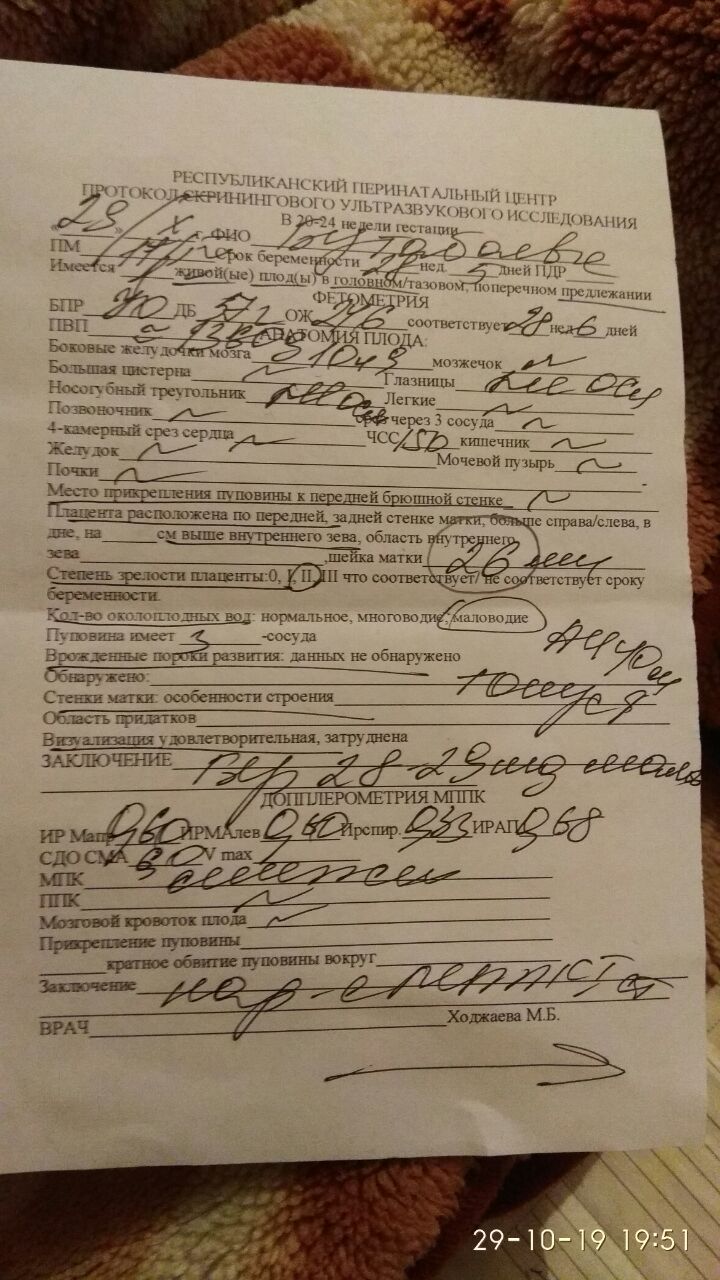 РЕСПУБЛИКАНСКИЙ ПЕРИНАТАЛЬНЫЙ ЦЕНТР
ПРОТОКОЛ СКРИНИНГОВОГО УЛЬТРАЗВУКОВОГО ИССЛЕДОВАНИЯ
В 20-24 недели гестации
г. ФИО
ПМ Срок беременности 28 нед. 5 дней ПДР
Имеется 1 живой(ые) плод(ы) в головном/тазовом, поперечном предлежании
ФЕТОМЕТРИЯ
БПР ДБ ОЖ 246 соответствует 28 нед 6 дней
ПВП
АНАТОМИЯ ПЛОДА:
Боковые желудочки мозга мозжечок ~
Большая цистерна ~ Глазницы
Носогубный треугольник Легкие ~
Позвоночник ~ срез через 3 сосуда ~
4-камерный срез сердца ~ ЧСС 150 кишечник ~
Желудок ~ Мочевой пузырь ~
Почки ~
Место прикрепления пуповины к передней брюшной стенке ~
Плацента расположена по передней, задней стенке матки, больше справа/слева, в
дне, на см выше внутреннего зева, область внутреннего
зева ,шейка матки 26 мм
Степень зрелости плаценты:0, I, II, III что соответствует/ не соответствует сроку
беременности.
Кол-во околоплодных вод: нормальное, многоводие, маловодие
Пуповина имеет 3 -сосуда
Врожденные пороки развития: данных не обнаружено
Обнаружено:
Стенки матки: особенности строения
Область придатков
Визуализация удовлетворительная, затруднена
ЗАКЛЮЧЕНИЕ Бер 28-29 нед
ДОППЛЕРОМЕТРИЯ МППК
ИР Мапр 0,60 ИРМАлев 0,60 Ирспир. ИРАП 0,68
СДО СМА V max
МПК снижен
ППК ~
Мозговой кровоток плода ~
Прикрепление пуповины
кратное обвитие пуповины вокруг
Заключение
ВРАЧ Ходжаева М.Б.
29-10-19 19:51